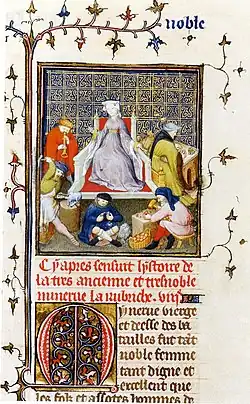 noble
Cy apres sensuit lystoire de
la tres ancienne et tresnoble
minerue la rubriche. viii
Mynerue vierge
et deesse des ba
tailles fut tāt
noble femme
tant digne et
excellent que
les folz et assotes hommes de